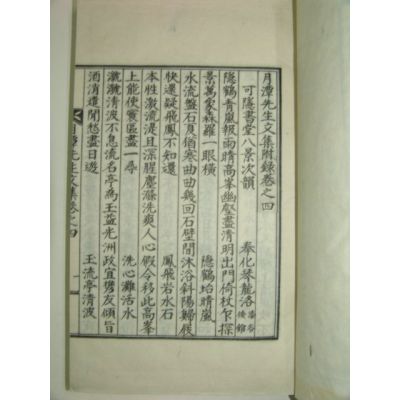 月潭先生文集附錄卷之四
可隱書堂八景次韻
奉化琴龍洛
隱鶴青嵐報雨晴高峯幽壑盡清明出門倚杖乍探
景萬象森羅一眼橫
隱鶴坮晴嵐
水流盤石夏猶寒曲曲幾回石壁間沐浴斜陽歸屐
快還疑飛鳳不知還
鳳飛岩水石
本性激流湜且深腥塵滌洗爽人心假令移此高峯
上能使寰區盡一尋
洗心灘活水
瀲瀲清波不息流名亭為玉益光洲政宜携友傾旨
酒消遣閒愁盡日遊
玉流亭清波
月潭先生文集卷之四
一